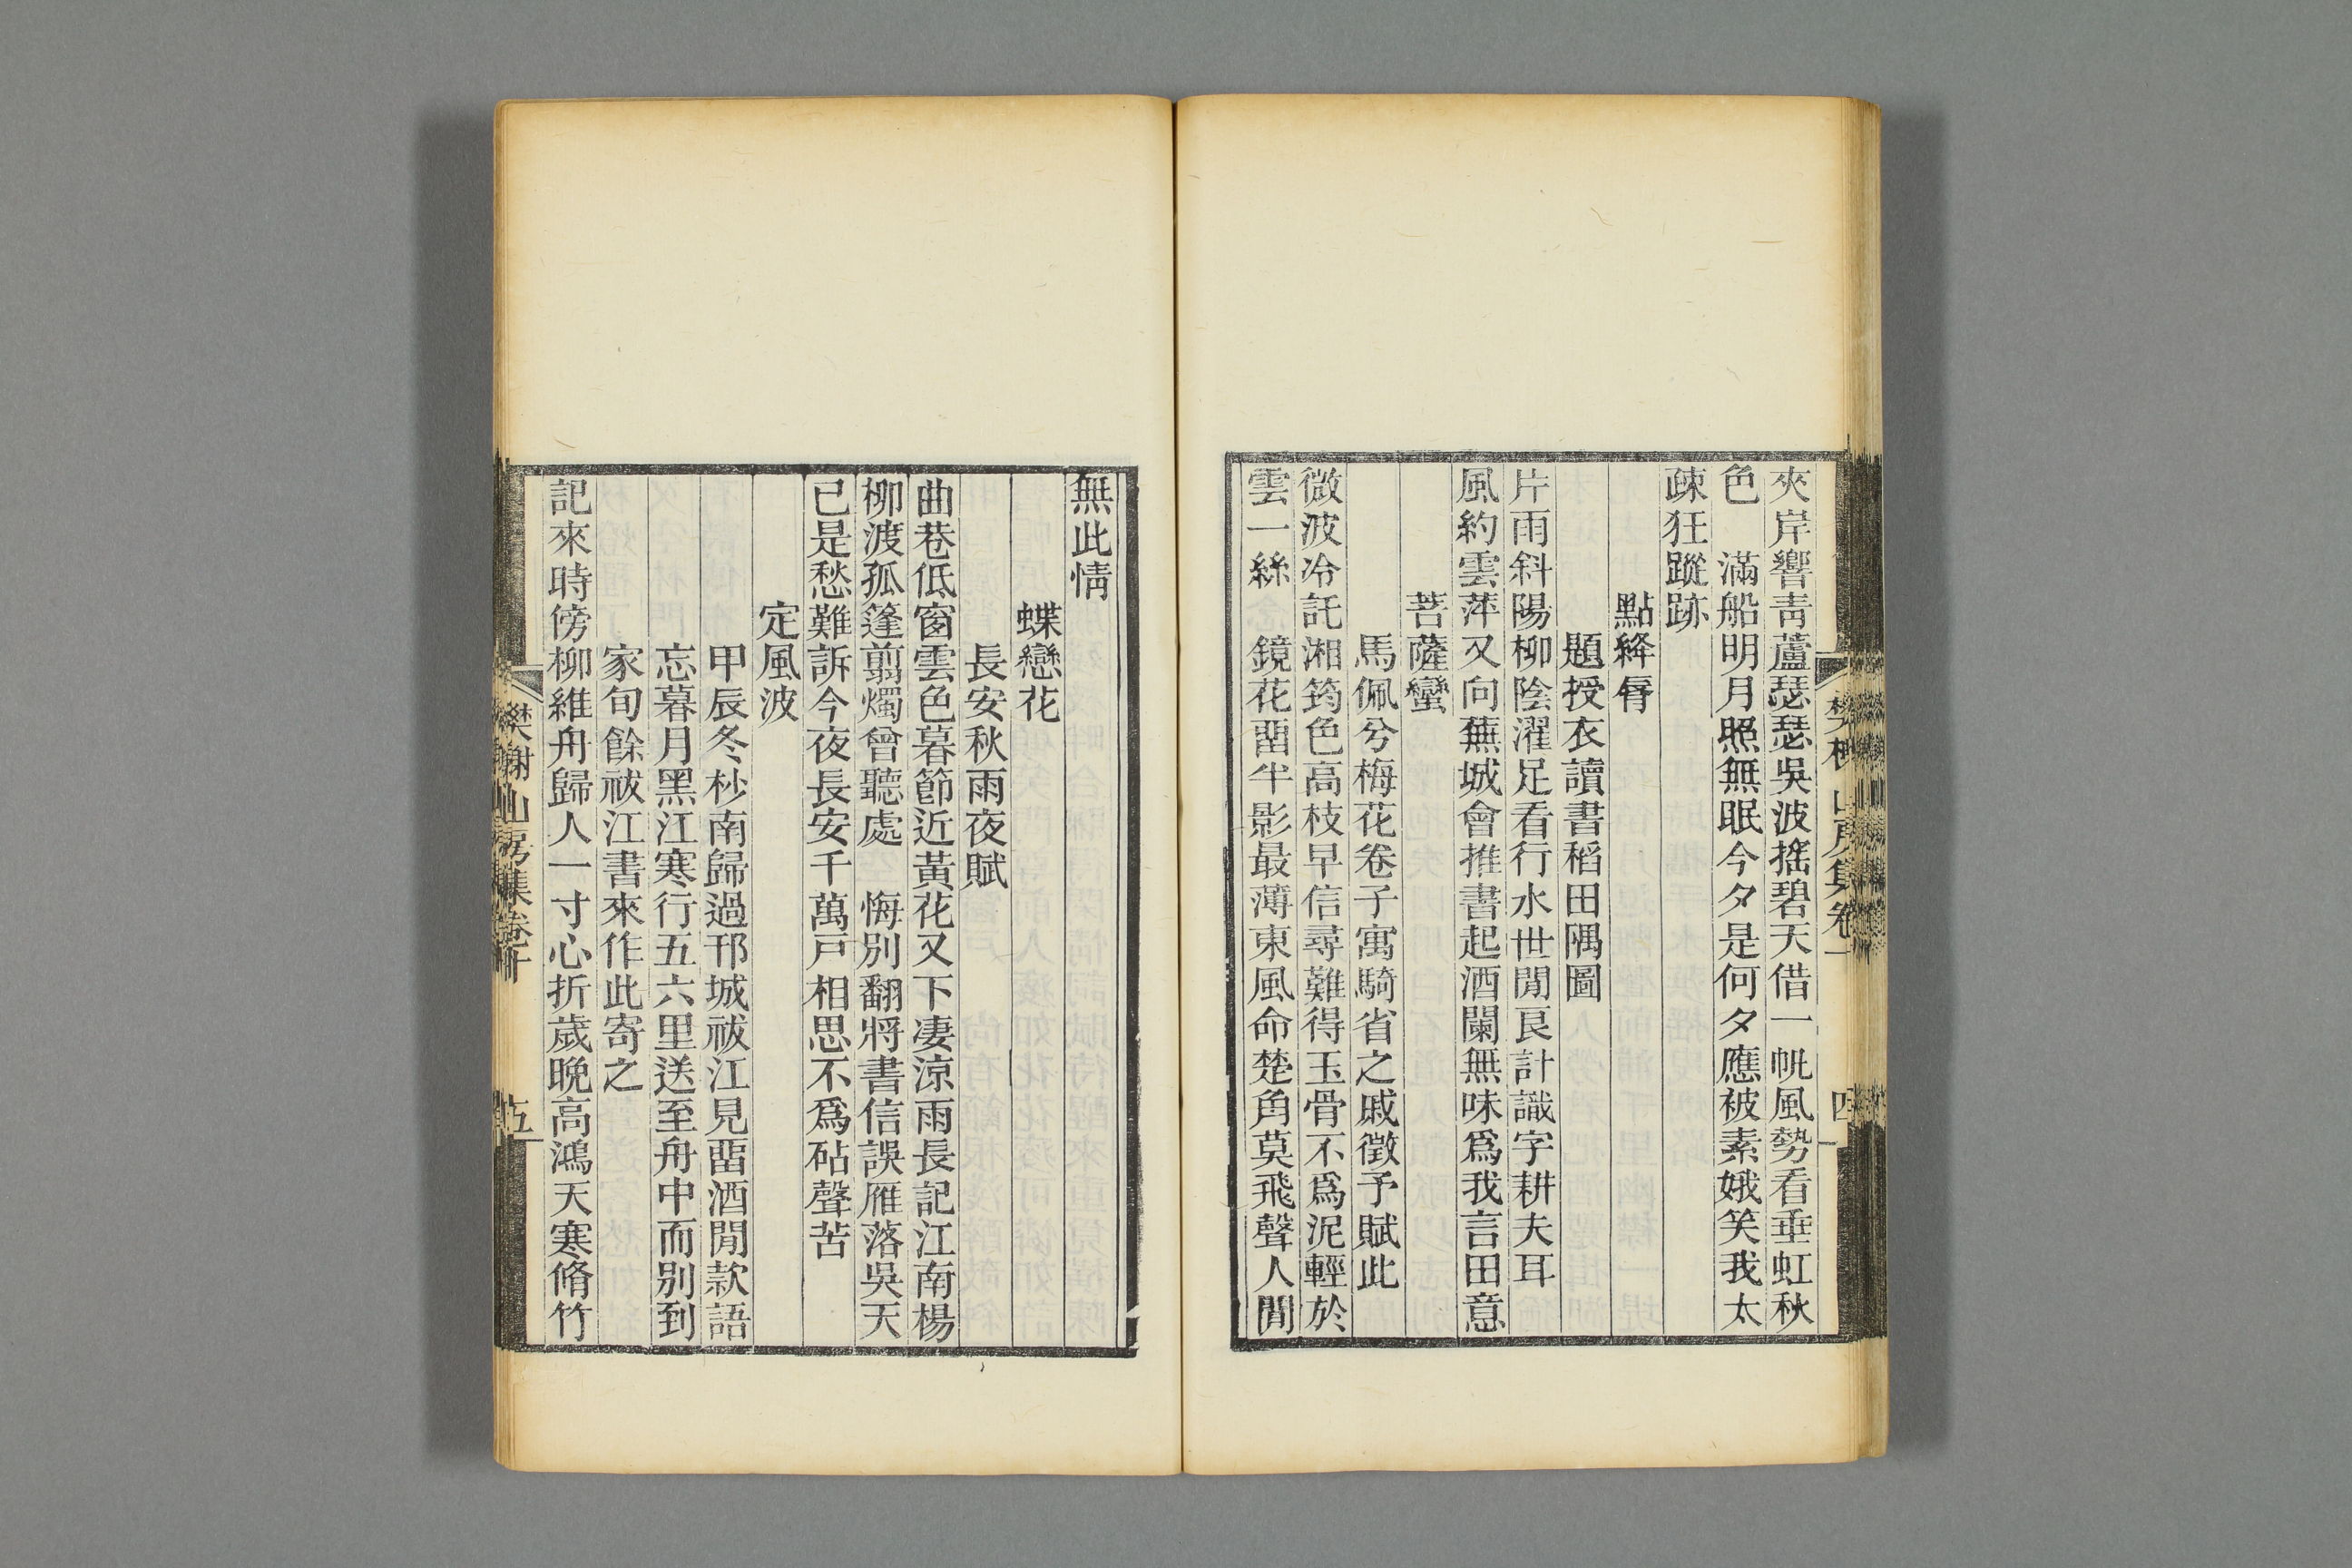 夾岸響靑蘆瑟瑟吳波搖碧天借一帆風勢看垂虹秋
色　滿船明月照無眠今夕是何夕應被素娥笑我太
疎狂蹤跡
點絳脣
題授衣讀書稻田隅圖
片雨斜陽柳陰濯足看行水世閒良計識字耕夫耳
風約雲萍又向蕪城會推書起酒闌無味爲我言田意
菩薩蠻
馬佩兮梅花卷子寓騎省之戚徵予賦此
微波冷託湘筠色高枝早信尋難得玉骨不爲泥輕於
雲一絲　鏡花畱半影最薄東風命楚角莫飛聲人閒
四
無此情
蝶戀花
長安秋雨夜賦
曲巷低窗雲色暮節近黃花又下凄涼雨長記江南楊
柳渡孤篷翦燭曾聽處　悔別翻將書信誤雁落吳天
已是愁難訴今夜長安千萬戸相思不爲砧聲苦
定風波
甲辰冬杪南歸過邗城祓江見畱酒閒款語
忘暮月黑江寒行五六里送至舟中而別到
家旬餘祓江書來作此寄之
記來時傍柳維舟歸人一寸心折歲晚高鴻天寒脩竹
樊榭山房集卷十
五